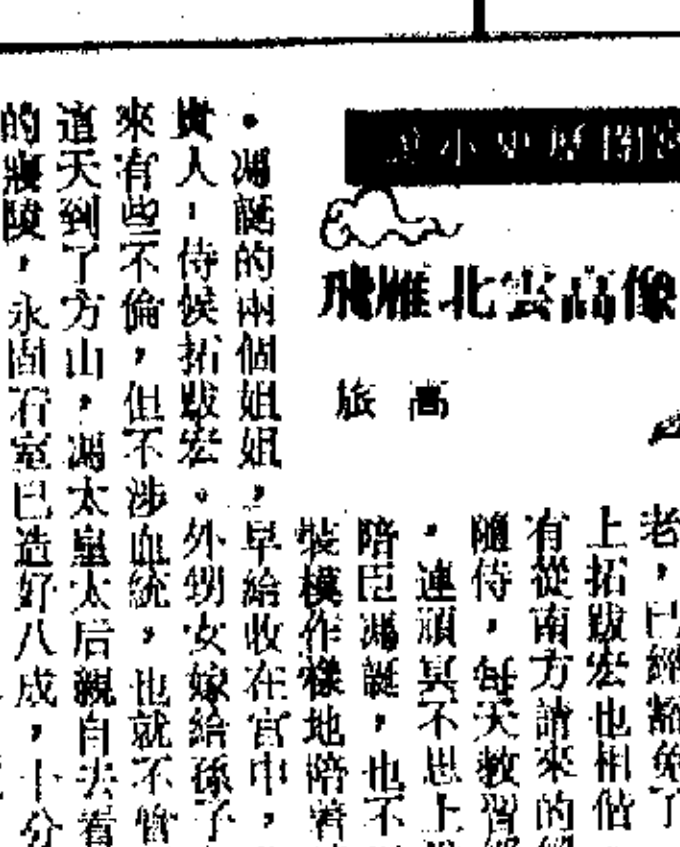 說小史歷間
飛雁北雲高像
旅高
老，已經豁免了
上拓跋宏也相偕
有從南方請來的
隨侍，每天教習
，連頑冥不思上
陪臣馮誕，也不
裝模作樣地陪着
，馮誕的兩個姐姐，早給收在宮中，
貴人，侍候拓跋宏。外甥女嫁給孫子
來有些不倫，但不涉血統，也就不管
這天到了方山，馮太皇太后親自去看
的壽陵，永固石室已造好八成，十分